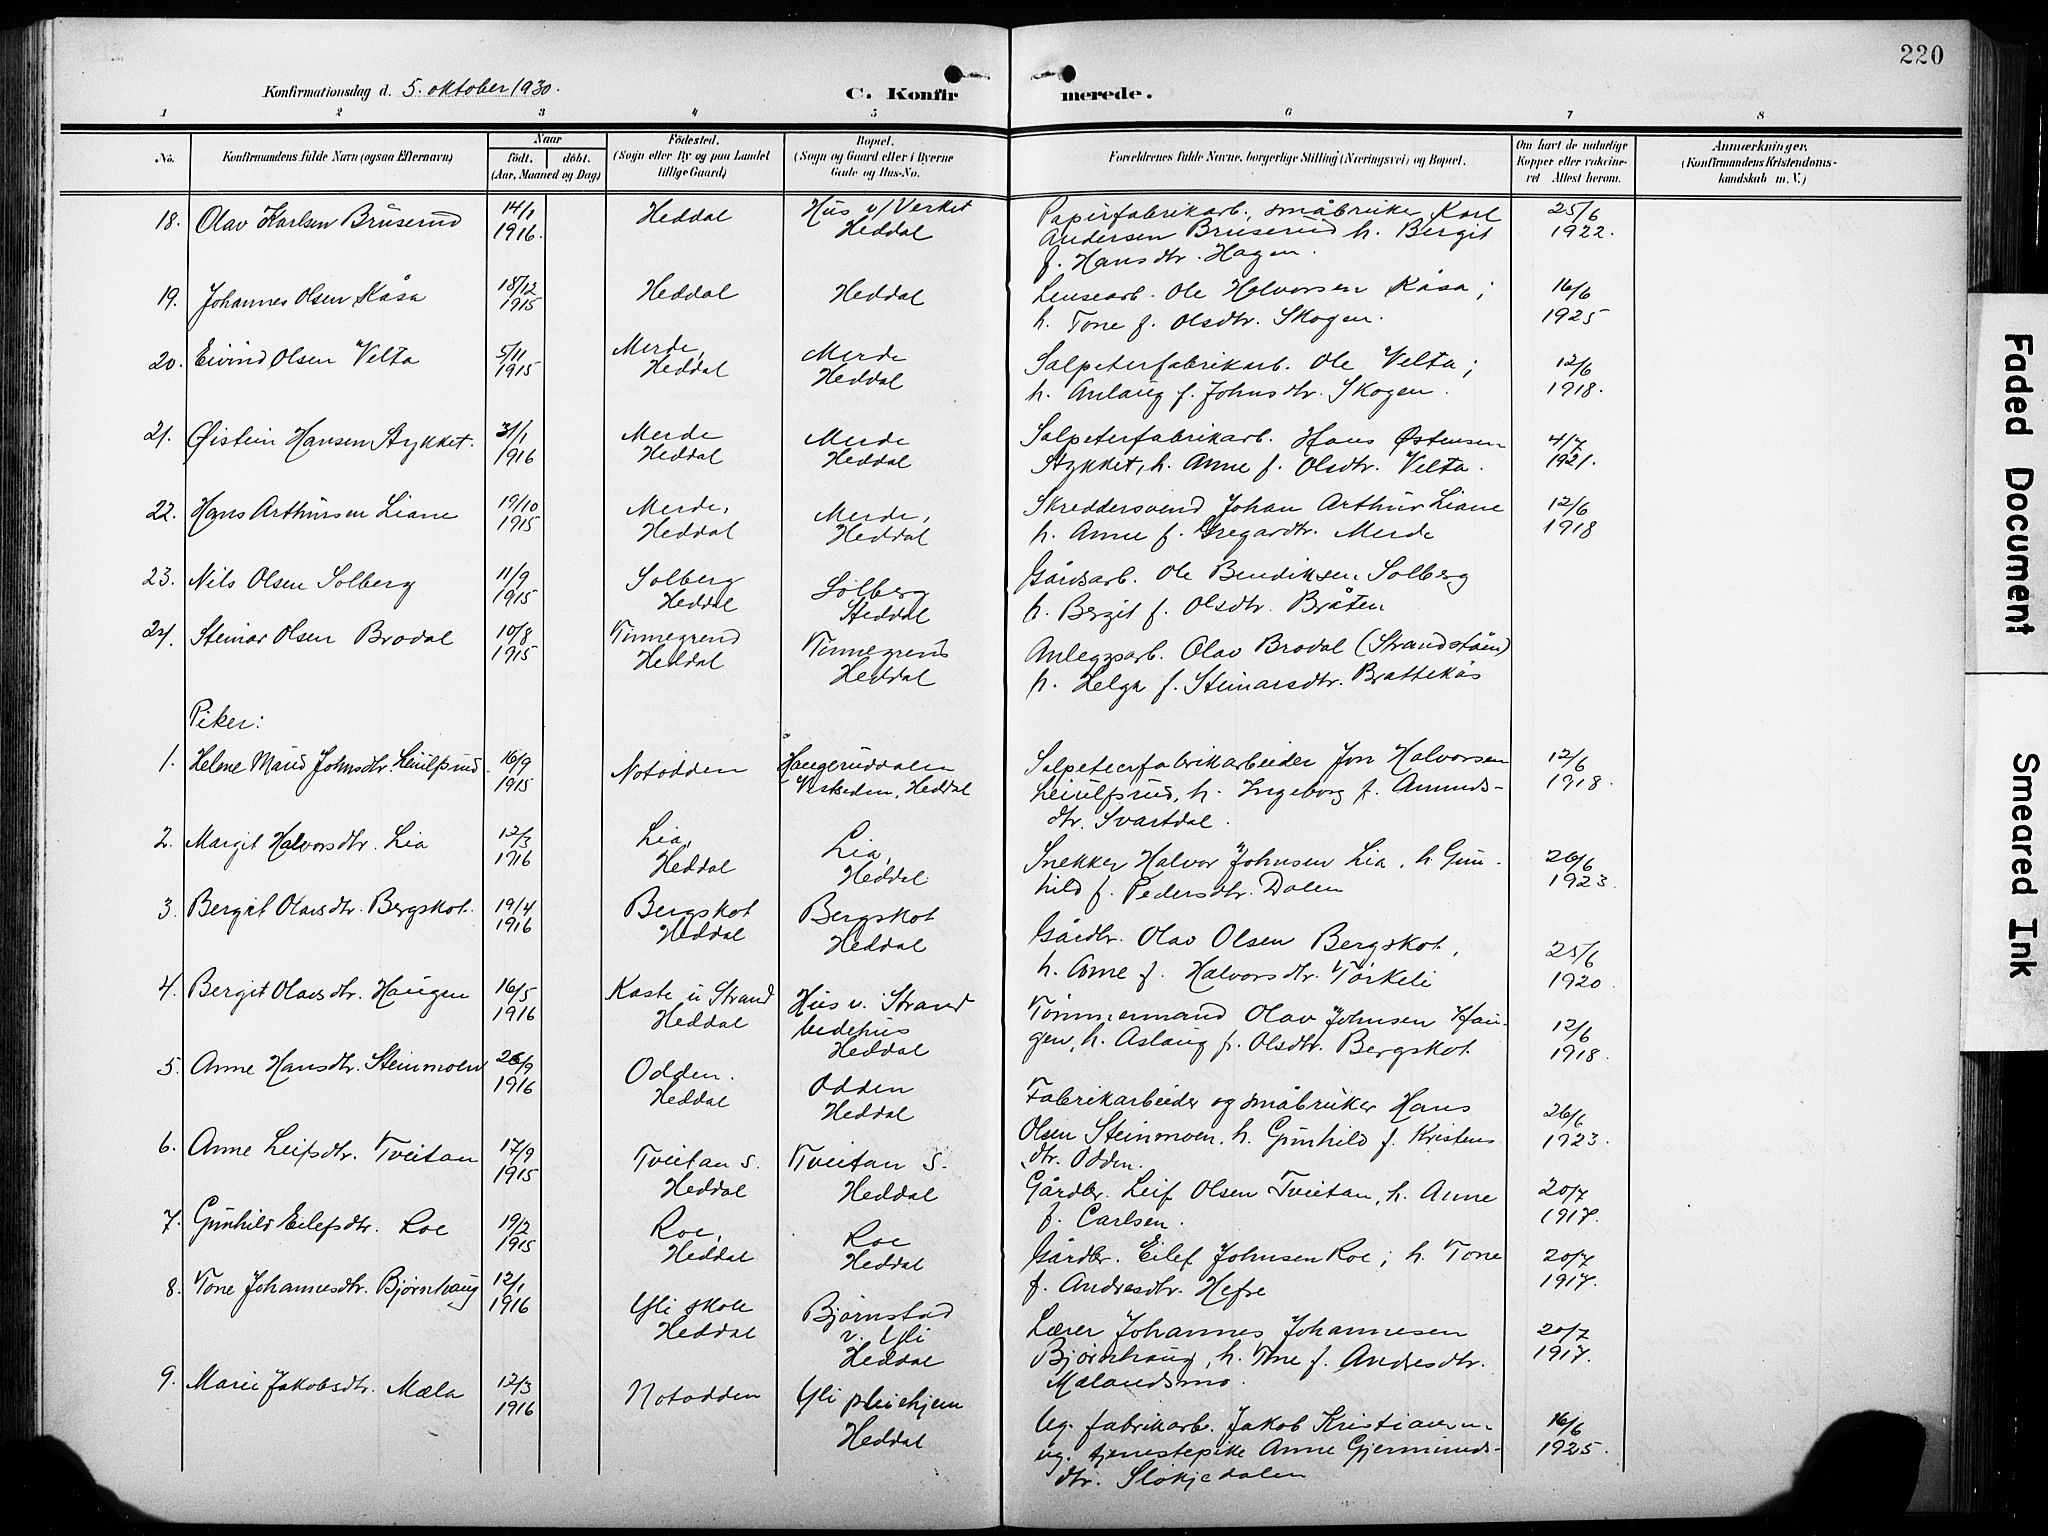 220
Konfirmationsdag d. 5. oktober 1930.
C. Konfirmerede.
1 2 3 4 5 6 7 8
No.
Konfirmandens fulde Navn (ogsaa Efternavn)
Naar
födt. döbt.
(Aar, Maaned og Dag)
Födested.
(Sogn eller By og paa Landet
tillige Gaard)
Bopæl.
(Sogn og Gaard eller i Byerne
Gade og Hus-No.
Forældrenes fulde Navne, borgerlige Stilling (Næringsvei) og Bopæl.
Om havt de naturlige
Kopper eller vakcine-
ret Attest herom.
Anmærkninger.
(Konfirmandens Kristendoms-
kundskab m. V.)
18. Olav Karlsen Bruserud 14/1 1916. Heddal Hus v/ Verket Heddal
Papirfabrikarb., småbruker Karl
Andersen Bruserud h. Bergit
f. Hansdtr. Hagen.
25/6 1922.
19. Johannes Olsen Kåsa 18/12 1915 Heddal Heddal
Lensearb. Ole Halvorsen Kåsa;
h. Tone f. Olsdtr. Skogen.
16/6 1925
20. Eivind Olsen Velta 5/11 1915 Merde, Heddal Merde Heddal
Salpeterfabrikarb. Ole Velta;
h. Anlaug f. Johnsdtr. Skogen.
12/6 1918.
21. Øistein Hansen Stykket. 31/1 1916 Merde Heddal Merde Heddal
Salpeterfabrikarb. Hans Østensen
Stykket, h. Anne f. Olsdtr. Velta.
4/7 1921.
22. Hans Arthursen Liane 19/10 1915 Merde, Heddal Merde, Heddal
Skreddersvend Johan Arthur Liane
h. Anne f. Gregardtr. Merde
12/6 1918
23. Nils Olsen Solberg 11/9 1915 Solberg Heddal Solberg Heddal
Gårdsarb. Ole Bendiksen Solberg
h. Bergit f. Olsdtr. Bråten
24. Steinar Olsen Brodal 10/8 1915 Tinnegrend Heddal Tinnegrend Heddal
Anlegsarb. Olav Brodal (Strandstøen)
h. Helga f. Steinarsdtr. Brattekås
Piker:
1. Helene Maud Johnsdtr. Leiulfsrud 16/9 1915 Notodden Haugeruddalen Yliskeden, Heddal
Salpeterfabrikarbeider Jon Halvorsen
Leiulfsrud, h. Ingeborg f. Amunds-
dtr. Svartdal.
12/6 1918.
2. Margit Halvorsdtr. Lia 12/3 1916 Lia, Heddal Lia, Heddal
Snekker Halvor Johnsen Lia, h Gun-
hild f. Pedersdtr. Dalen
26/6 1923.
3. Bergit Olavsdtr. Bergskot. 19/4 1916 Bergskot Heddal Bergskot Heddal
Gårdbr. Olav Olsen Bergskot,
h. Anne f. Halvorsdtr. Torkeli
25/6 1920.
4. Bergit Olavsdtr. Haugen 16/5 1916 Kaste u Strand Heddal Hus v. Strand bedehus Heddal
Tømmermand Olav Johnsen Hau-
gen, h. Aslaug f. Olsdtr. Bergskot.
12/6 1918.
5. Anne Hansdtr. Steinmoen 26/9 1916 Odden. Heddal Odden Heddal
Fabrikarbeider og småbruker Hans
Olsen Steinmoen, h. Gunhild f. Kristens
dtr. Odden.
26/6 1923.
6. Anne Leifsdtr. Tveitan 17/9 1915 Tveitan s. Heddal Tveitan s. Heddal
Gårdbr. Leif Olsen Tveitan, h. Anne
f. Carlsen.
20/7 1917.
7. Gunhild Eilefsdtr. Roe 19/2 1915 Roe, Heddal Roe Heddal
Gårdbr. Eilef Johnsen Roe; h. Tone
f. Andresdtr. Hefre
20/7 1917.
8. Tone Johannesdtr. Bjørnhaug 12/1 1916 Yli skole Heddal Bjørnstad v. Yli Heddal
Lærer Johannes Johannesen
Bjørnhaug, h. Tone f. Andresdtr.
Mælandsmo.
20/7 1917.
9. Marie Jakobsdtr. Mæla 12/3 1916 Notodden Yli pleiehjem Heddal
Ug. fabrikarb. Jakob Kristiansen
ug. tjenestepike Anne Gjermunds-
dtr. Slokjedalen
16/6 1925.
Faded Document
Smeared Ink